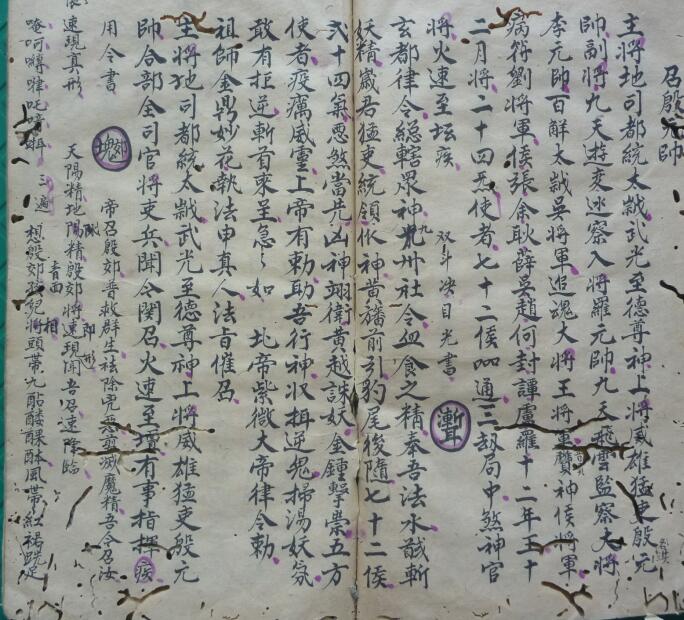 召殷元帥
主將地司都統太歲武光至德尊神上將威雄猛吏殷元
帥副將九天遊変巡察入將羅元帥九天飛雲監察大將
李元帥百解太歲吳將軍追魂大將王將軍贊神侯將軍
病符劉將軍侯張余耿薛吳趙何封譚盧羅十二年王十
二月將二十四炁使者七十二侯四通三刼局中煞神官
將火速至坛疾 双斗决目光書
玄都律令総轄眾神九州社令血食之精奉吾法水馘斬
妖精歲君猛吏統領依神黃旛前引豹尾後隨七十二侯
弍十四氣悪煞當先凶神翊衛黃越誅妖金鐘擊祟五方
使者疫癘威靈上帝有勅助吾行神收捉逆鬼掃湯妖氛
敢有拒逆斬首來呈急〻如 北帝紫微大帝律令勅
祖師金鼎妙花執法申真人法旨催召
主將地司都統太歲武光至德尊神上將威雄猛吏殷元
帥合部全司官將吏兵聞令関召火速至壇有事指揮 疾
用令書 帝召殷郊普救群生祛除兇悪剪滅魔精吾令召汝
速現真形 天陽精地陽精殷郊將速現聞吾召速降臨
三遍 想殷郊 將頭帶九 骷髏 風帶紅 跣足